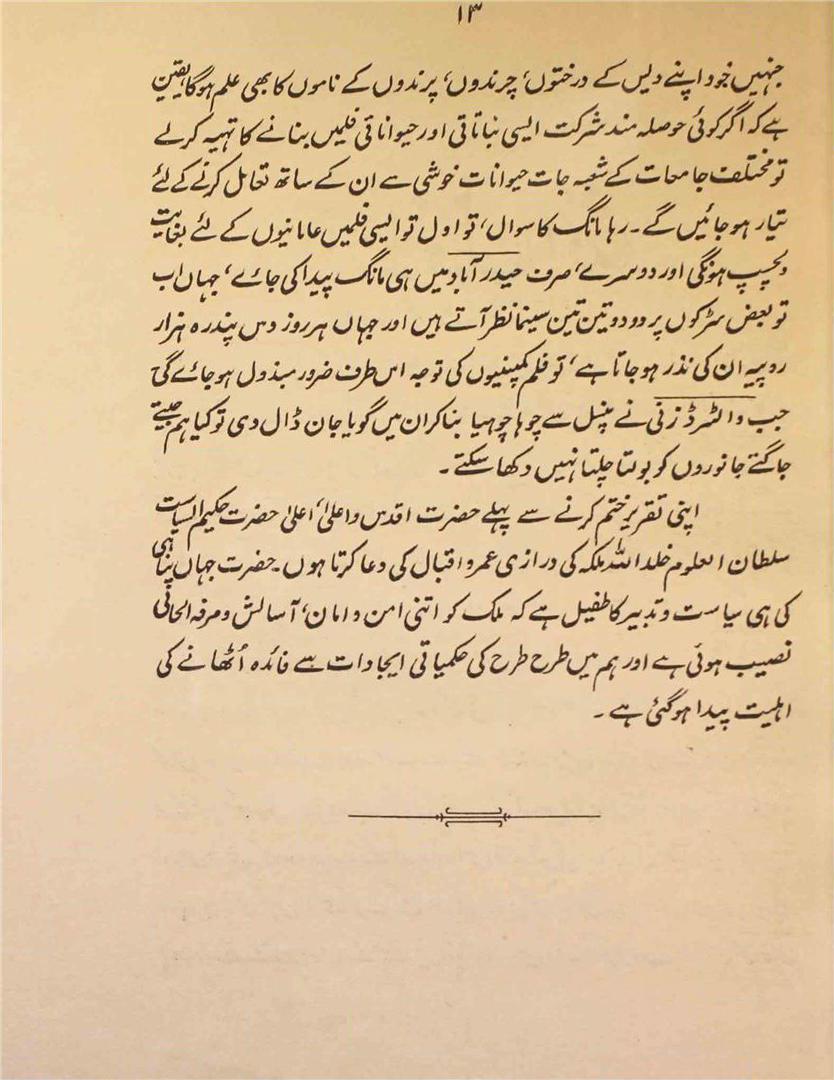 ۱۳
جنہیں خود اپنے دیس کے درختوں‘ چرندوں‘ پرندوں کے ناموں کا بھی علم ہوگا یقین
ہے کہ اگر کوئی حوصلہ مند شرکت ایسی نباتاتی اور حیواناتی فلمیں بنانے کا تہیہ کرلے
تو مختلف جامعات کے شعبہ جات حیوانات خوشی سے ان کے ساتھ تعامل کرنے کے لئے
تیار ہوجائیں گے۔ رہا مانگ کا سوال‘ تو اول تو ایسی فلمیں عامانیوں کے لئے بغایت
دلچسپ ہونگی اور دوسرے‘ صرف حیدرآباد میں ہی مانگ پیدا کی جائے‘ جہاں اب
تو بعض سڑکوں پر دو دو تین تین سینما نظر آتے ہیں اور جہاں ہر روز دس پندرہ ہزار
روپیہ ان کی نذر ہوجاتا ہے‘ تو فلم کمپنیوں کی توجہ اس طرف ضرور مبذول ہوجائے گی
جب والٹرڈزنی نے پنسل سے چوہا چوہیا بنا کر ان میں گویا جان ڈال دی تو کیا ہم جیتے
جاگتے جانوروں کو بولتا چلتا نہیں دکھا سکتے۔
اپنی تقریر ختم کرنے سے پہلے حضرت اقدس واعلیٰ‘ اعلیٰ حضرت حکیم السیاست
سلطان العلوم خلد اللہ ملکہ کی درازی عمر و اقبال کی دعا کرتا ہوں۔ حضرت جہاں پناہی
کی ہی سیاست و تدبیر کا طفیل ہے کہ ملک کو اتنی امن و امان‘ آسائش و مرفہ الحالی
نصیب ہوئی ہے اور ہم میں طرح طرح کی حکمیاتی ایجادات سے فائدہ اُٹھانے کی
اہلیت پیدا ہوگئی ہے۔